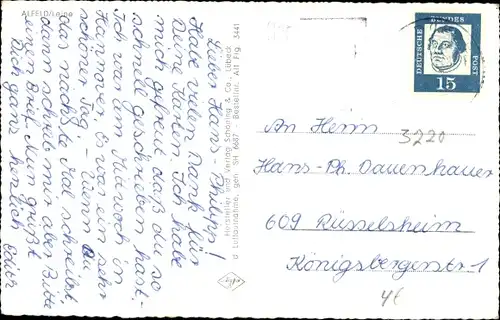 ALFELD/Leine
Lieber Hans-Philipp!
Habe vielen Dank für
Deine Karten. Ich habe
mich gefreut daß du so
schnell geschrieben hast.
Ich war am Mittwoch in
Hannover. Es war ein sehr
schöner Tag – Wenn Du
das nächste Mal schreibst
dann schreib mir aber Bitte
eine Brief. Nun grüßt
Dich ganz herzlich
Hersteller und Verlag Schöning & Co., Lübeck
a. Luftaufnahme, gen. SH 6687 Bestellnr. Alf Frg. 3441
DEUTSCHE
BUNDES
POST
15
An Herrn
3220
Hans-Ph. Dauenhauer
609 Rüsselsheim
Königsbergerstr. 1